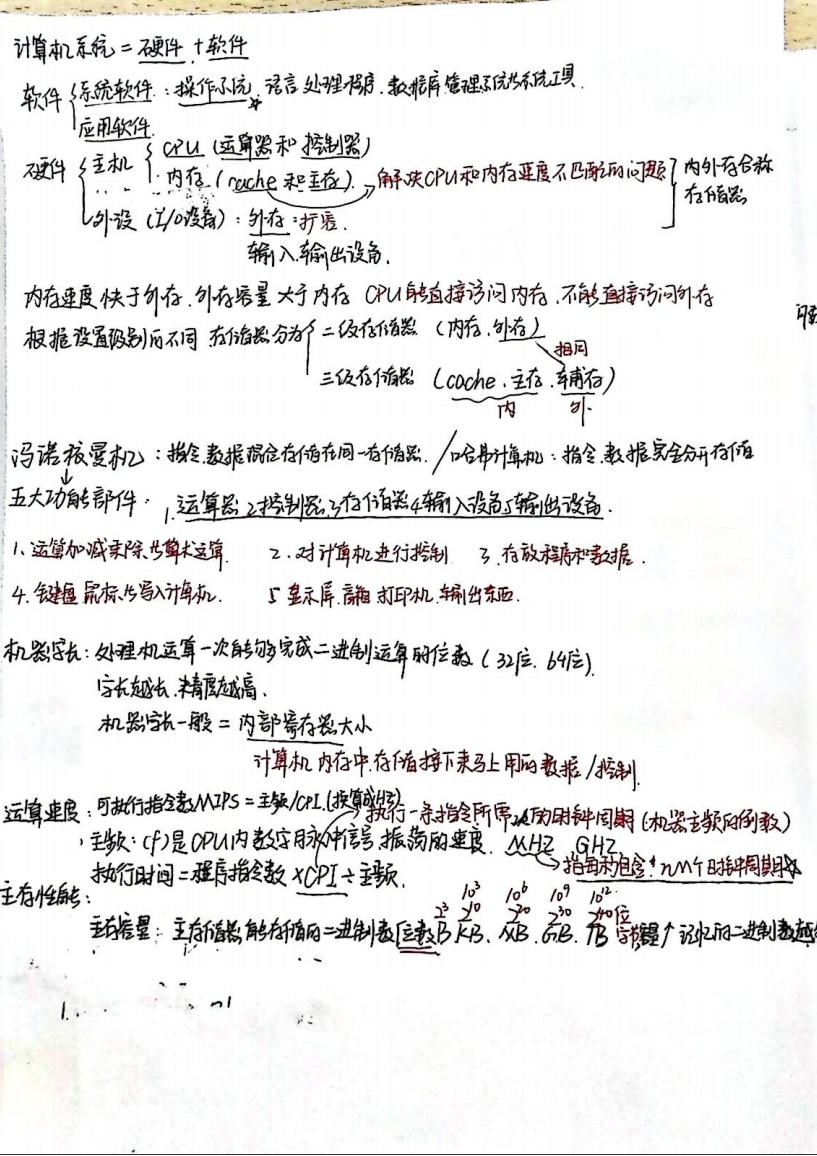 计算机系统 = 硬件 + 软件
软件 { 系统软件：操作系统*，语言处理程序、数据库管理系统与系统工具.
应用软件
硬件 { 主机 { CPU (运算器和控制器)
内存 (cache 和主存) → 解决CPU和内存速度不匹配的问题 ] 内外存合称存储器
外设 (I/O设备)：外存：扩展.
输入、输出设备.
内存速度快于外存. 外存容量大于内存 CPU能直接访问内存、不能直接访问外存
根据设置级别的不同 存储器分为 { 二级存储器 (内存、外存)
相同
三级存储器 (cache、主存、辅存)
内 外
冯诺依曼机：指令、数据混合存储在同一存储器. / 哈弗计算机：指令、数据完全分开存储
五大功能部件：1.运算器 2控制器 3存储器 4输入设备 5输出设备.
1、运算加减乘除与算术运算 2. 对计算机进行控制 3. 存放程序和数据.
4. 键盘 鼠标与写入计算机. 5 显示屏、音箱 打印机、输出东西.
机器字长：处理机运算一次能够完成二进制运算的位数 (32位、64位).
字长越长、精度越高.
机器字长一般 = 内部寄存器大小
计算机内存中、存储接下来马上用的数据/控制.
运算速度：可执行指令数MIPS = 主频/CPI.(换算成HZ)
执行一条指令所需 的时钟周期 (机器主频的倒数)
主频：(f)是CPU内数字脉冲信号振荡的速度. MHZ GHZ
执行时间 = 程序指令数 × CPI ÷ 主频.
指每秒包含 个时钟周期
主存性能：
10³ 10⁶ 10⁹ 10¹²
2³ 2¹⁰ 2²⁰ 2³⁰ 2⁴⁰位
主存容量：主存储器能存储的二进制数位数 B KB、MB、GB、TB 容量↑ 记忆的二进制数越
1.